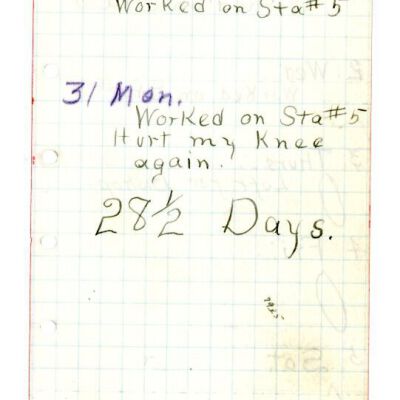 Worked on Sta#5
31 Mon.
Worked on Sta#5
Hurt my Knee
again.
28½ Days.